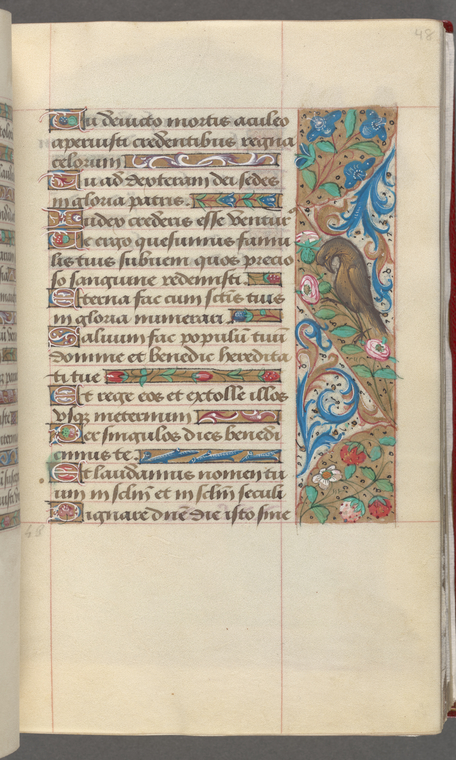 48
Tu devicto mortis aculeo
aperuisti credentibus regna
celorum
Tu ad dexteram dei sedes
in gloria patris.
Iudex crederis esse ventur
Te ergo quesumus famu
lis tuis subveni quos precio
so sanguine redemisti
Eterna fac cum sctis tuis
in gloria numerari.
Salvum fac populū tuū
domine et benedic heredita
ti tue
Et rege eos et extolle illos
usq; in eternum
Per singulos dies benedi
cimus te.
Et laudamus nomen tu
um in seclm̄ et in seclm̄ seculi
Dignare dn̄e die isto sine